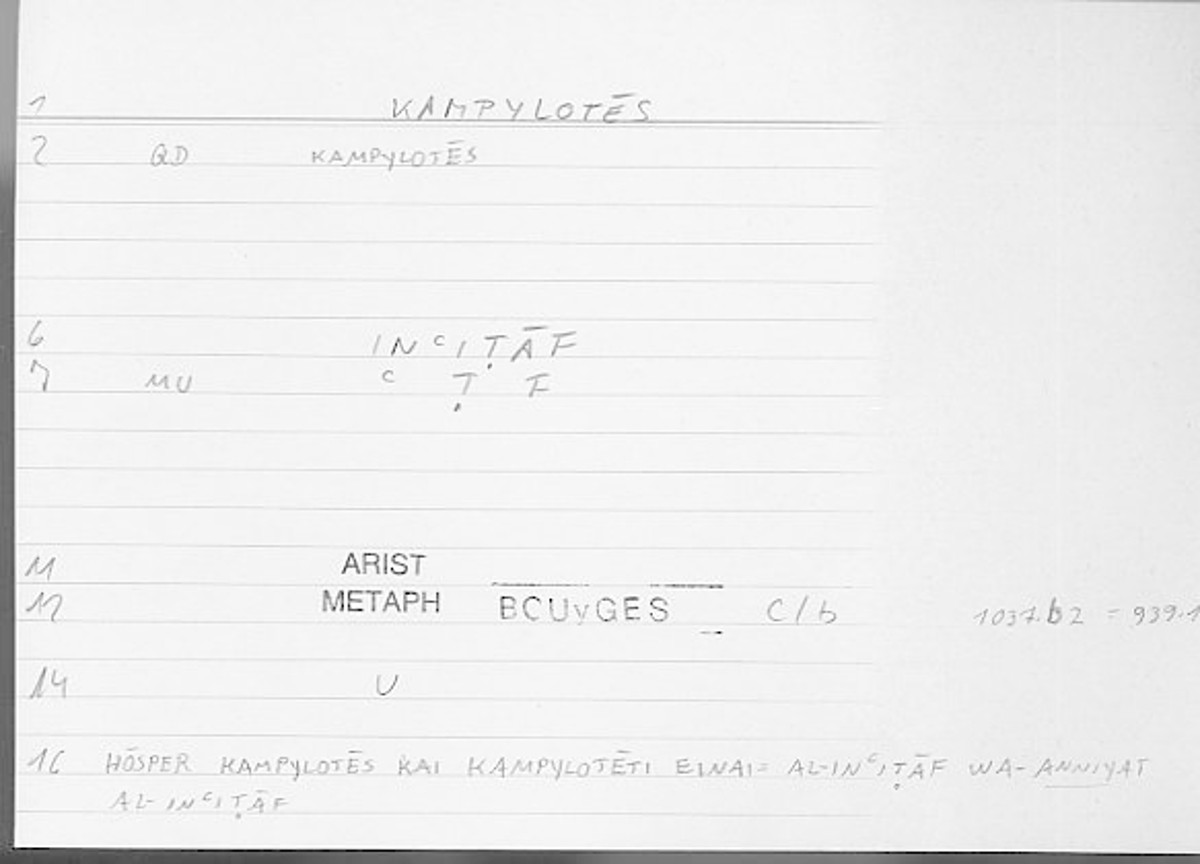 1 KAMPYLOTĒS
2 QD KAMPYLOTĒS
6 INᶜIṬĀF
7 MU ᶜ Ṭ F
11 ARIST
12 METAPH BCUvGES C/b 1037.b2 = 939.1
14 U
16 HŌSPER KAMPYLOTĒS KAI KAMPYLOTĒTI EINAI = AL-INᶜIṬĀF WA-ANNIYAT
AL-INᶜIṬĀF